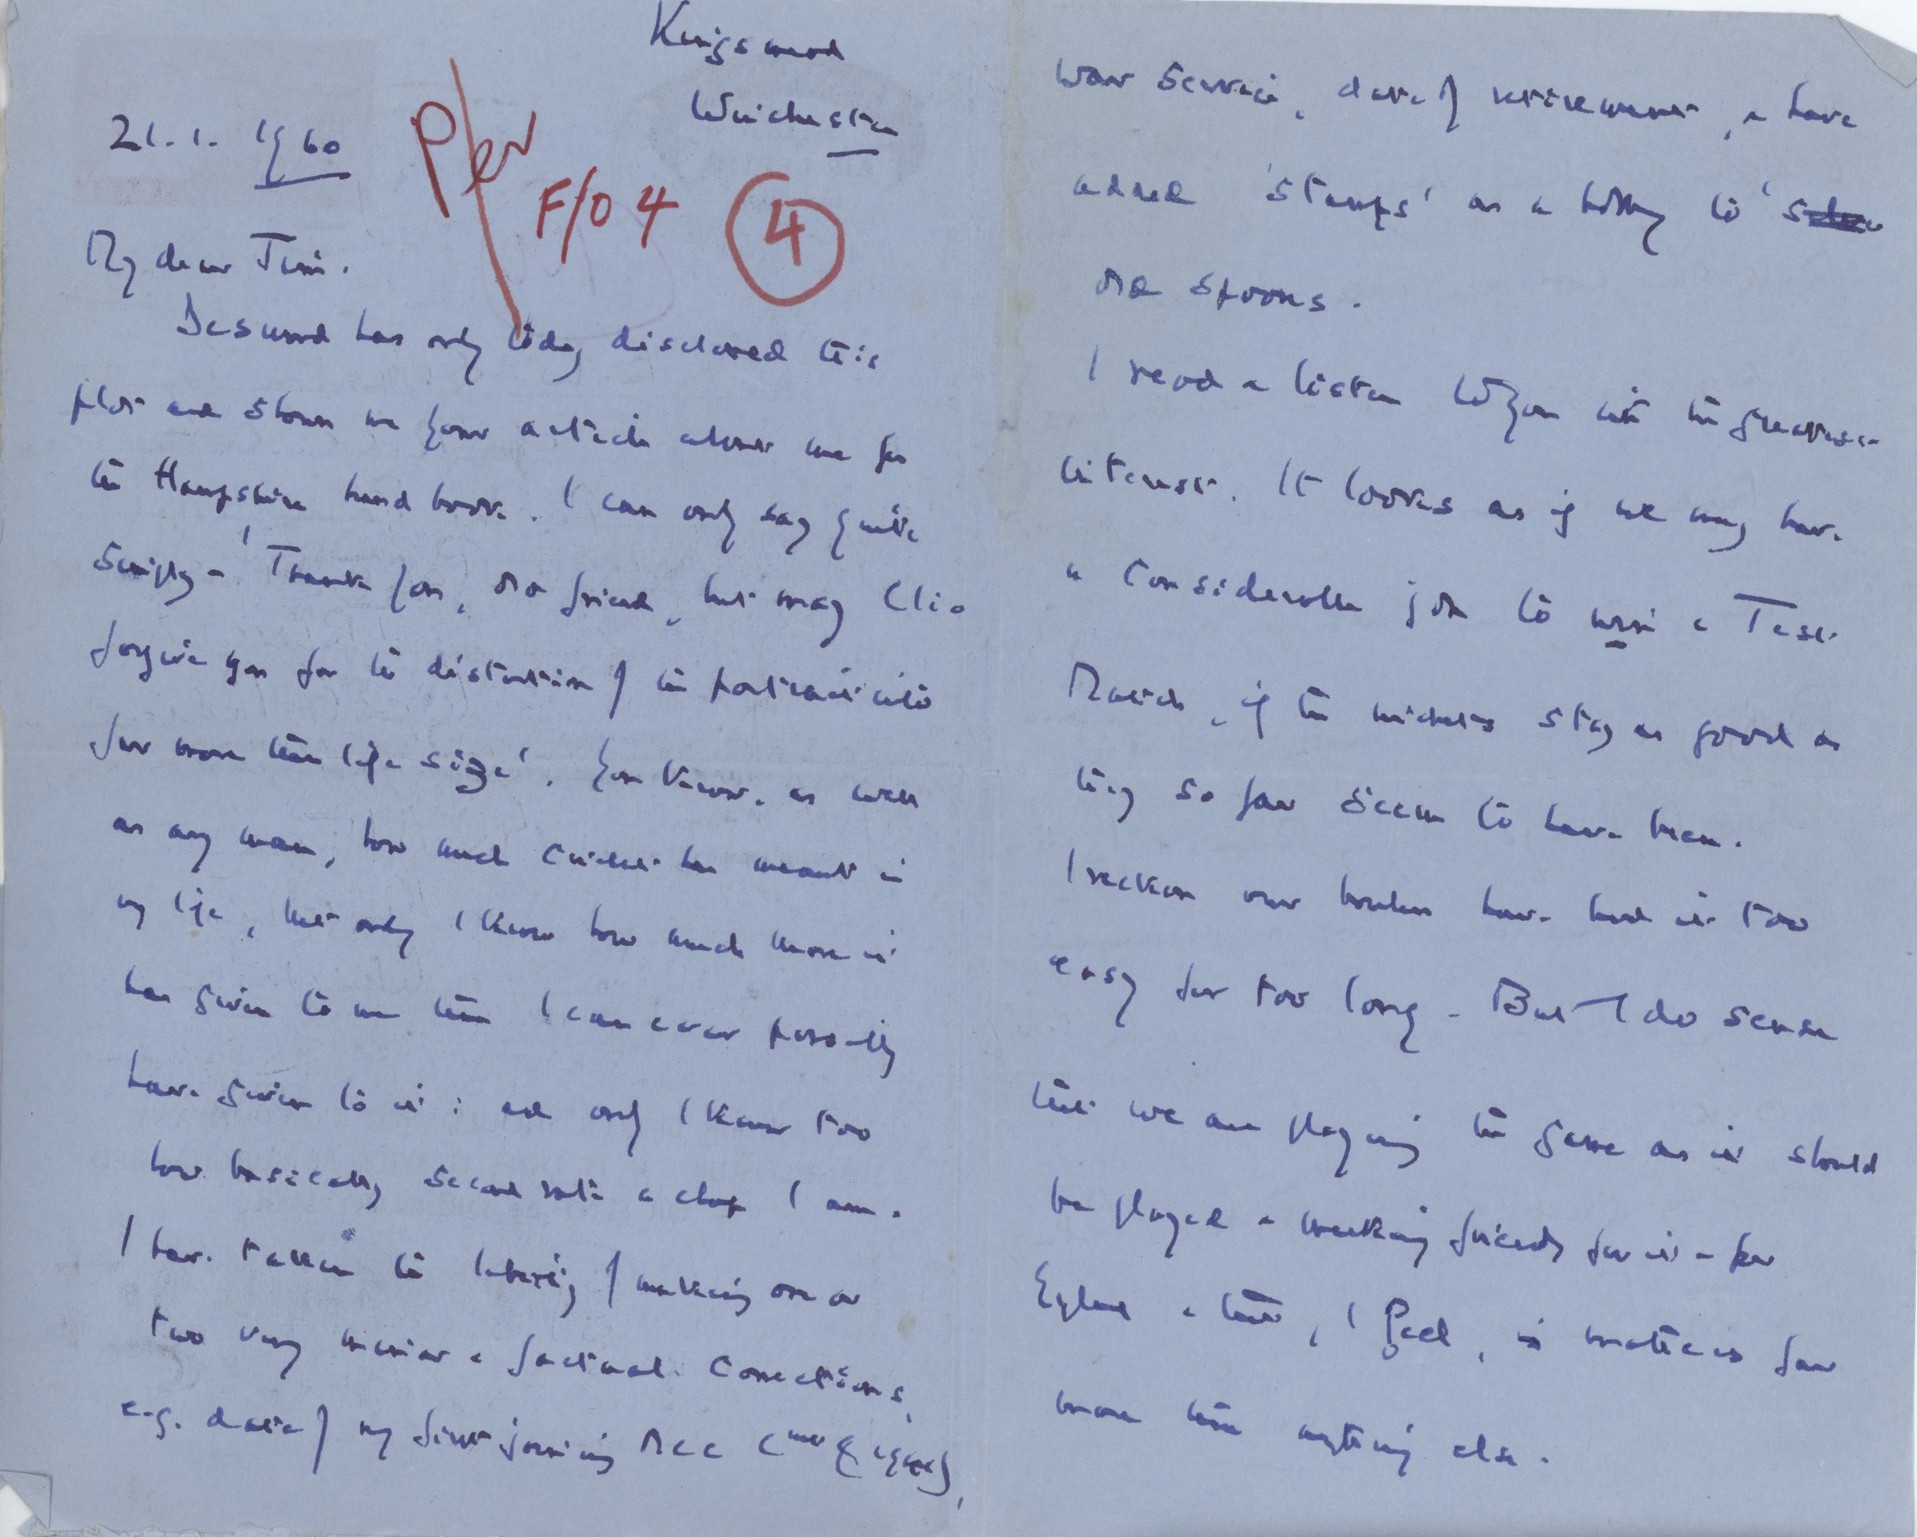 Kingsmead
Winchester
21.1.1960
Per
F/O 4
4
My dear Jim.
Desmond has only today disclosed this
plot and shown me your article about me for
the Hampshire hand book. I can only say quite
simply - 'Thank you, old friend, but may Clio
forgive you for the distortion of the portrait into
far more than life size'. You know, as well
as any man, how much cricket has meant in
my life, but only I know how much more it
has given to me than I can ever possibly
have given to it: and only I know too
how basically second rate a chap I am.
I have taken the liberty of making one or
two very minor & factual corrections,
e.g. date of my first joining MCC
war service, date of retirement, & have
added 'stamps' as a hobby to 's
old spoons.
I read & listen to you with the greatest
interest. It looks as if we may have
a considerable job to win a Test
Match, if the wickets stay as good as
they so far seem to have been.
I reckon our bowlers have had it too
easy for too long - But I do sense
that we are playing the game as it should
be played & making friends for it & for
England & that, I feel, is matters far
more than anything else.